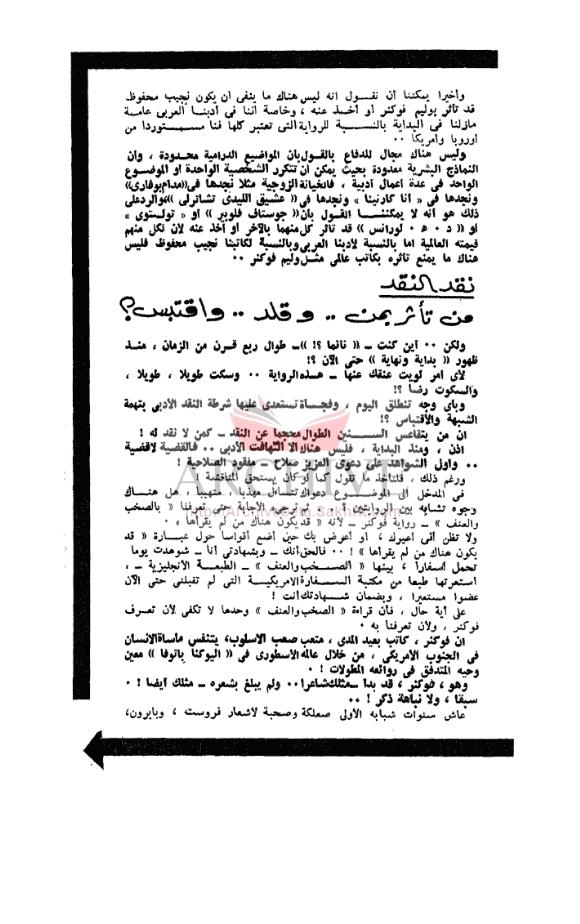 وأخيرا يمكننا أن نقول انه ليس هناك ما ينفى أن يكون نجيب محفوظ
قد تأثر بوليم فوكنر أو أخذ عنه ، وخاصة أننا فى أدبنا العربى عامة
مازلنا فى البداية بالنسبة للرواية التى تعتبر كلها فنا مستوردا من
أوروبا وأمريكا ٠٠
وليس هناك مجال للدفاع بالقول بأن المواضيع الدرامية محدودة ، وأن
النماذج البشرية معدودة بحيث يمكن أن تتكرر الشخصية الواحدة أو الموضوع
الواحد فى عدة أعمال أدبية ، فالخيانة الزوجية مثلا نجدها فى «مدام بوفارى»
ونجدها فى « انا كارنينا » ونجدها فى « عشيق الليدى تشاترلى » والرد على
ذلك هو أنه لا يمكننا القول بأن « جوستاف فلوبير » أو « تولستوى »
أو « د ٠ ه ٠ لورانس » قد تأثر كل منهما بالآخر أو أخذ عنه لأن لكل منهم
قيمته العالمية اما بالنسبة لأدبنا العربى وبالنسبة لكاتبنا نجيب محفوظ فليس
هناك ما يمنع تأثره بكاتب عالمى مثل وليم فوكنر ٠٠
نقد النقد
من تأثر بمن .. وقلد .. واقتبس؟
ولكن ٠٠ أين كنت ــ « نائما ؟! » ــ طوال ربع قرن من الزمان ، منذ
ظهور « بداية ونهاية » حتى الآن ؟!
لأى أمر لويت عنقك عنها ــ هذه الرواية ٠٠ وسكت طويلا ، طويلا ،
والسكوت رضا ؟!
وبأى وجه تنطلق اليوم ، وفجأة تستعدى عليها شرطة النقد الأدبى بتهمة
الشبهة والأقتباس ؟!
ان من يتقاعس السنين الطوال محجما عن النقد ــ كمن لا نقد له !
اذن ، ومنذ البداية ، فليس هناك الا التهافت الأدبى ٠٠ فالقضية لا قضية
٠٠ وأول الشواهد على دعوى العزيز صلاح ــ مفقود الصلاحية !
ورغم ذلك ، فلنأخذ ما تقول كما لو كان يستحق المناقشة !
فى المدخل الى الموضوع دعواك تتساءل مهذبا ، متهيبا ، هل هناك
وجوه تشابه بين الروايتين ؟ ، ثم ترجىء الاجابة حتى تعرفنا « بالصخب
والعنف » ــ رواية فوكنر ــ لأنه « قد يكون هناك من لم يقرأها » ٠
ولا تظن أنى أعيرك ، أو أعرض بك حين أضع أقواسا حول عبارة « قد
يكون هناك من لم يقرأها » ! ٠٠ فالحق أنك ــ وبشهادتى أنا ــ شوهدت يوما
تحمل أسفارا ، بينها « الصخب والعنف » ــ الطبعة الأنجليزية ــ ،
استعرتها طبعا من مكتبة السفارة الامريكية التى لم تقبلنى حتى الآن
عضوا مستعيرا ، وبضمان شهادتك أنت !
على أية حال ، فأن قراءة « الصخب والعنف » وحدها لا تكفى لأن تعرف
فوكنر ، ولان تعرفنا به ٠
ان فوكنر ، كاتب بعيد المدى ، متعب صعب الاسلوب، يتنفس مأساة الانسان
فى الجنوب الأمريكى ، من خلال عالمه الأسطورى فى « اليوكنا باتوفا » معين
وحيه المتدفق فى روائعه المطولات ! ٠
وهو ، فوكنر ، قد بدأ ــ مثلك شاعرا ٠٠ ولم يبلغ بشعره ــ مثلك أيضا ! ٠
سبقا ، ولا نباهة ذكر ! ٠٠
عاش سنوات شبابه الأولى صعلكة وصحبة لأشعار فروست ، وبايرون،
ARCHIVE